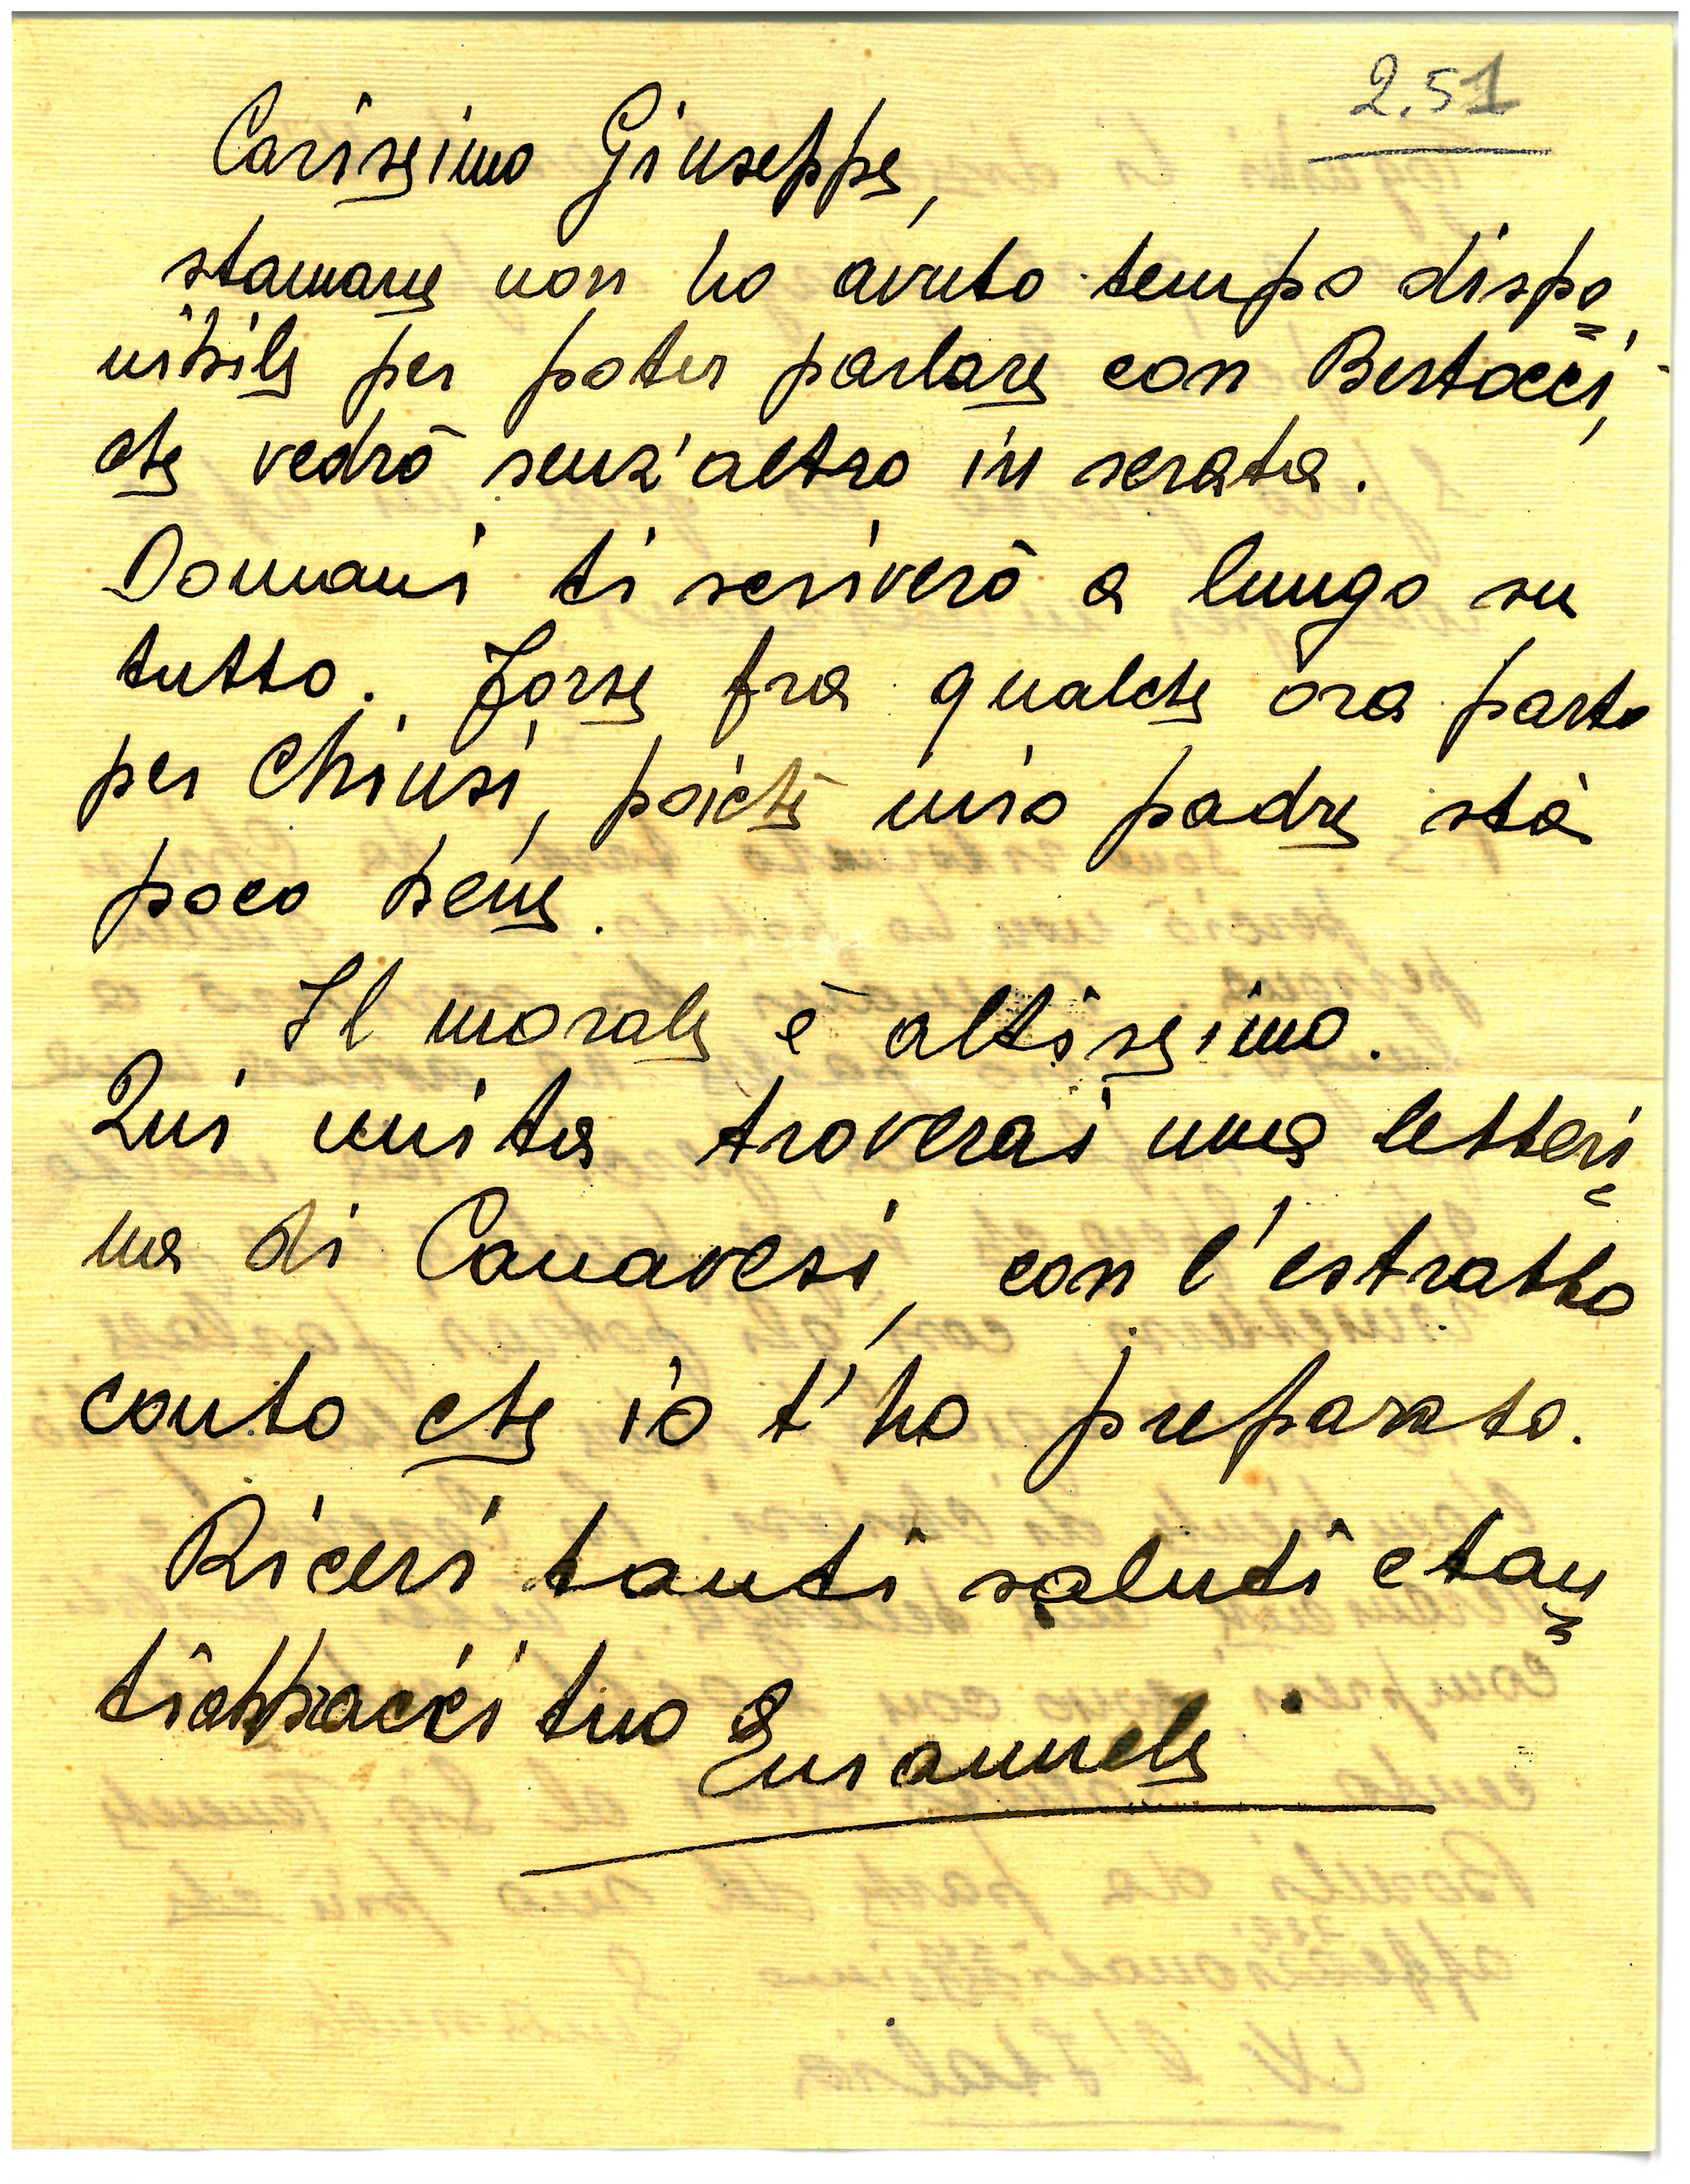 2.51
Carissimo Giuseppe,
stamane non ho avuto tempo dispo=
nibile per poter parlare con Bertocci,
che vedrò senz'altro in serata.
Domani ti scriverò a lungo su
tutto. Forse fra qualche ora parto
per Chiusi, poiché mio padre stà
poco bene.
Il morale è altissimo.
Qui unita troverai una letteri=
na di Canavesi, con l'estratto
conto che io t'ho preparato.
Ricevi tanti saluti e tan=
ti abbracci tuo
Emanuele